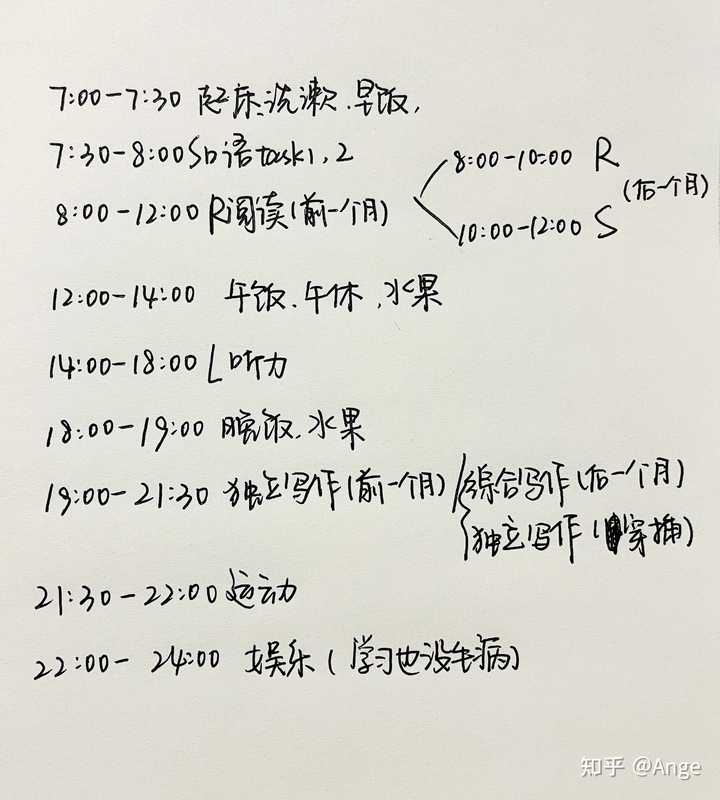 7:00-7:30 起床、洗漱、早饭,
7:30-8:00 Sb语 task1, 2
8:00-12:00 R阅读(前一个月)
8:00-10:00 R
10:00-12:00 S
(后一个月)
12:00-14:00 午饭、午休、水果
14:00-18:00 L听力
18:00-19:00 晚饭、水果
19:00-21:30 独立写作(前一个月)/综合写作(后一个月)
独立写作(穿插)
21:30-22:00 运动
22:00- 24:00 娱乐(学习也没毛病)
知乎 @Ange